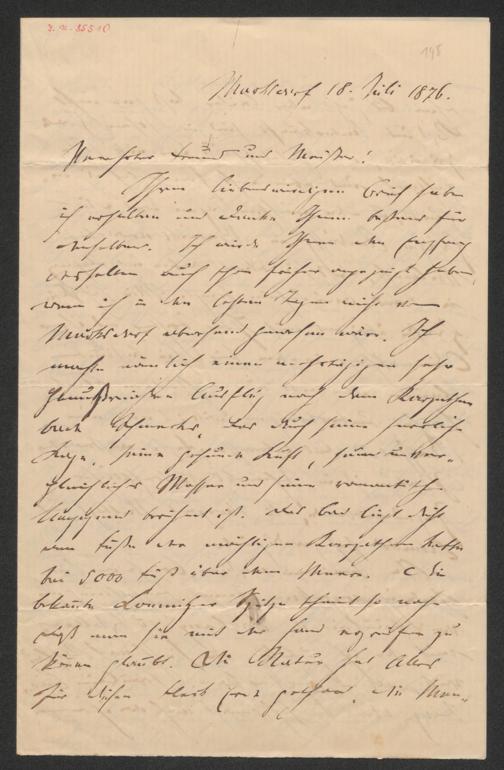 148
Marksdorf 18. Juli 1876.
Verehrter Freund und Meister!
Ihren liebenswürdigen Brief habe
ich erhalten und danke Ihnen bestens für
denselben. Ich würde Ihnen den Empfang
desselben auch schon früher angezeigt haben,
wenn ich in den letzten Tagen nicht von
Marksdorf abwesend gewesen wäre. Ich
machte nämlich einen mehrtägigen sehr
genußreichen Ausflug nach dem Karpathen
bade Schmecks, das durch seine herrliche
Lage, seine gesunde Luft, sein unver-
gleichliches Wasser und seine romantische
Umgegend berühmt ist. Das Bad liegt dicht
am Fuße der mächtigen Karpathenkette
bei 5000 Fuß über dem Meere. Die
bekannte Lomnitzer Spitze scheint so nahe
daß man sie mit der Hand ergreifen zu
können glaubt. Die Natur hat Alles
für diesen gethan, die Men-